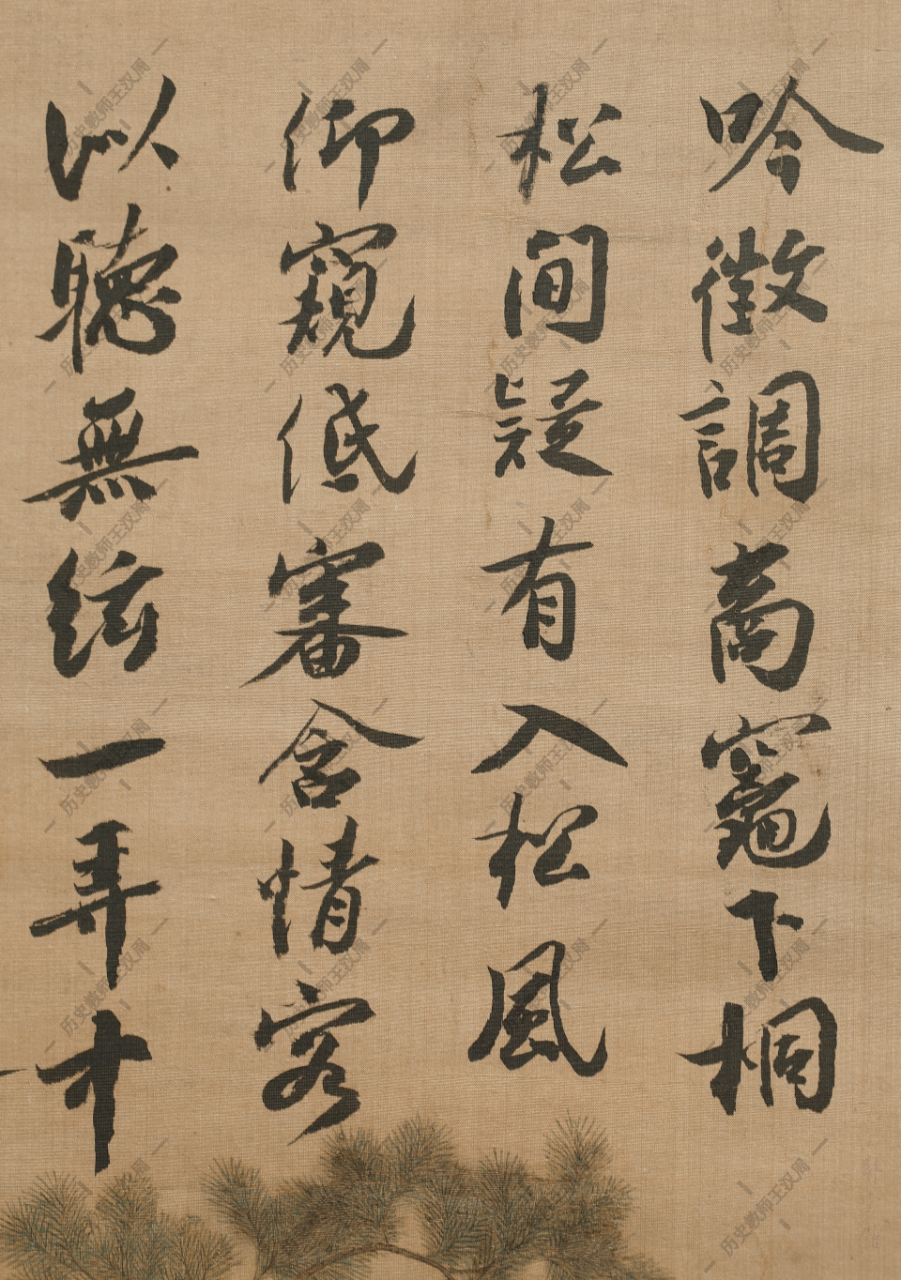 吟徵調商竈下桐
松間疑有入松風
仰窺低審含情客
以聽無絃一弄中
历史教师王汉周